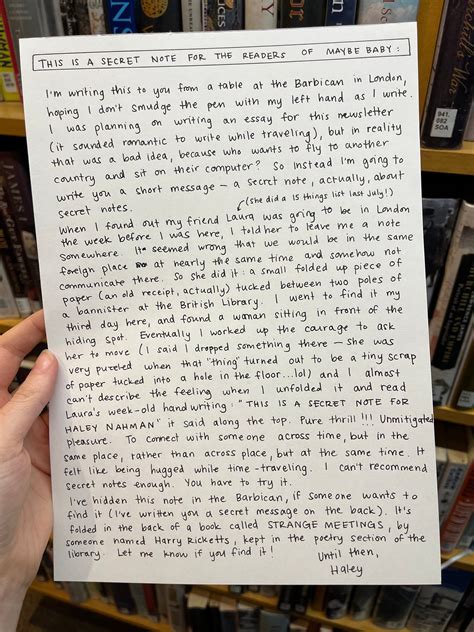 THIS IS A SECRET NOTE FOR THE READERS OF MAYBE BABY:
I'm writing this to you from a table at the Barbican in London,
hoping I don't smudge the pen with my left hand as I write.
I was planning on writing an essay for this newsletter
(it sounded romantic to write while traveling), but in reality
that was a bad idea, because who wants to fly to another
country and sit on their computer? So instead I'm going to
write you a short message – a secret note, actually, about
secret notes.
(she did a 15 things list last July!)
When I found out my friend Laura was going to be in London
the week before I was here, I told her to leave me a note
somewhere. It seemed wrong that we would be in the same
foreign place at nearly the same time and somehow not
communicate there. So she did it: a small folded up piece of
paper (an old receipt, actually) tucked between two poles of
a bannister at the British Library. I went to find it my
third day here, and found a woman sitting in front of the
hiding spot. Eventually I worked up the courage to ask
her to move (I said I dropped something there – she was
very puzzled when that "thing" turned out to be a tiny scrap
of paper tucked into a hole in the floor...lol) and I almost
can't describe the feeling when I unfolded it and read
Laura's week-old handwriting: "THIS IS A SECRET NOTE FOR
HALEY NAHMAN" it said along the top. Pure thrill!!! Unmitigated
pleasure. To connect with someone across time, but in the
same place, rather than across place, but at the same time. It
felt like being hugged while time-traveling. I can't recommend
secret notes enough. You have to try it.
I've hidden this note in the Barbican, if someone wants to
find it (I've written you a secret message on the back). It's
folded in the back of a book called STRANGE MEETINGS, by
someone named Harry Ricketts, kept in the poetry section of the
library. Let me know if you find it!
Until then,
Haley
941.
082
SOA